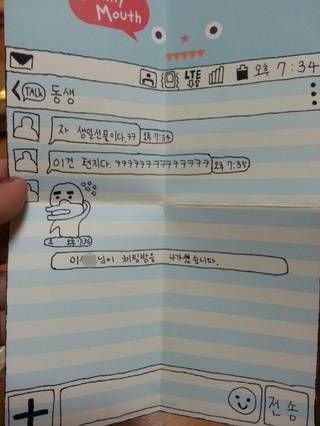 Mouth
LTE 오후 7:34
TALK 동생
자 생일선물이다.ㅋㅋ 오후 7:34
이건 편지다. ㅋㅋㅋㅋㅋㅋㅋㅋㅋㅋㅋㅋㅋㅋ 오후 7:35
오후 7:36
이 님이 채팅방을 나가셨습니다.
전송